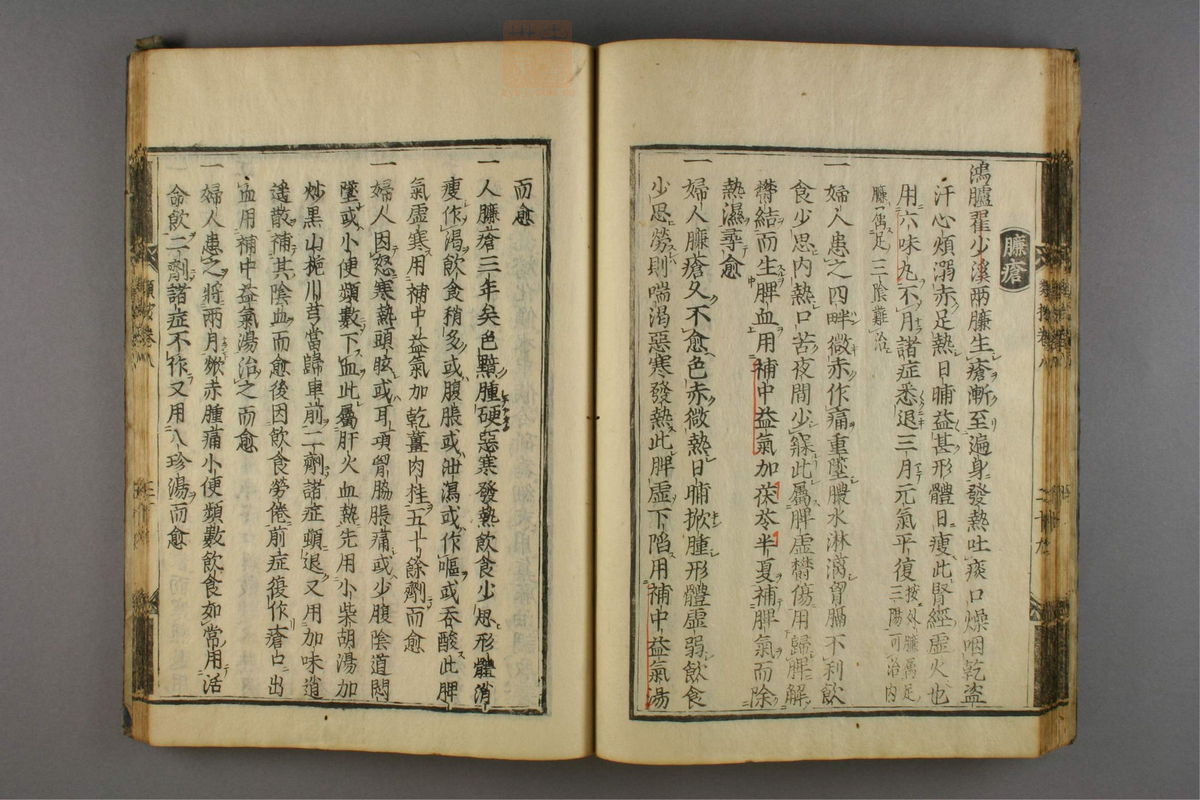 臁瘡
鴻臚翟少溪兩臁生瘡漸至遍身發熱吐痰口燥咽乾盗
汗心煩溺赤足熱日晡益甚形體日瘦此腎經虛火也
用六味丸不月諸症悉退三月元氣平復按外臁屬足三陽可治内
臁屬足三陰難治
一婦人患之四畔微赤作痛重墜膿水淋漓胃膈不利飲
食少思内熱口苦夜間少寐此屬脾虛欝傷用歸脾解
欝結而生脾血用補中益氣加茯苓半夏補脾氣而除
熱濕尋愈
一婦人臁瘡久不愈色赤微熱日晡掀腫形體虛弱飲食
少思勞則喘渴惡寒發熱此脾虛下陷用補中益氣湯
而愈
一人臁瘡三年矣色黯腫硬惡寒發熱飲食少思形體消
瘦作渴飲食稍多或腹脹或泄瀉或作嘔或吞酸此脾
氣虛寒用補中益氣加乾薑肉桂五十餘劑而愈
一婦人因怒寒熱頭眩或耳項胷脇脹痛或少腹陰道悶
墜或小便頻數下血此屬肝火血熱先用小柴胡湯加
炒黑山梔川芎當歸車前二劑諸症頓退又用加味逍
遥散補其陰血而愈後因飲食勞倦前症復作瘡口出
血用補中益氣湯治之而愈
一婦人患之將兩月焮赤腫痛小便頻數飲食如常用活
命飲二劑諸症不作又用八珍湯而愈